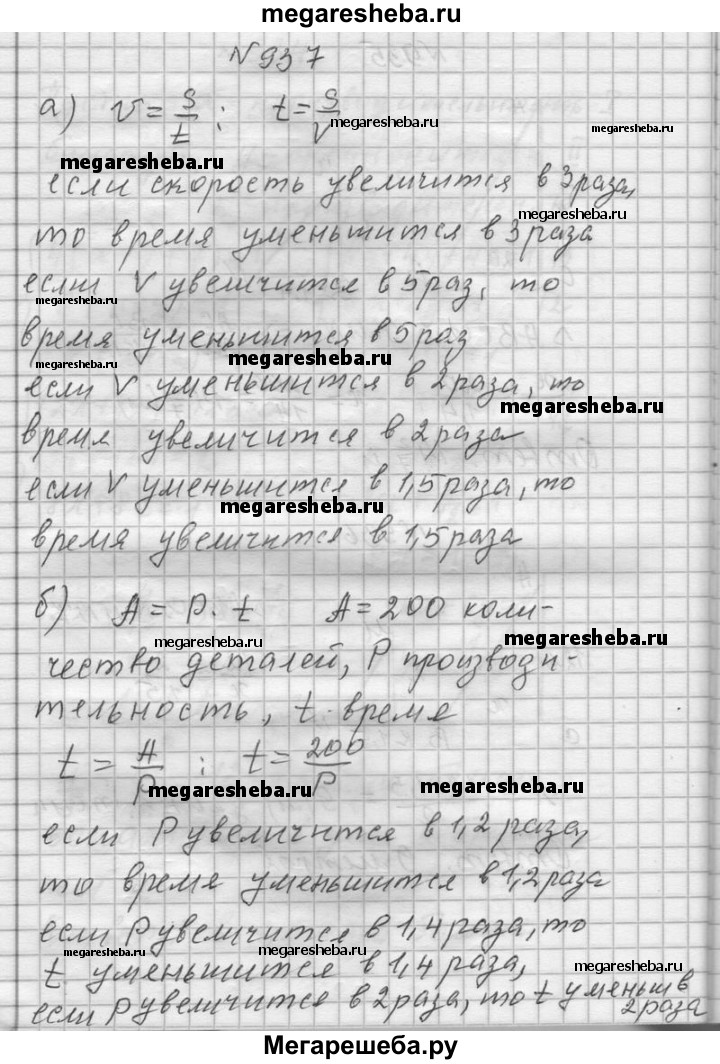 megaresheba.ru
N 937
а) v = S/t ; t = S/V
megaresheba.ru
megaresheba.ru
megaresheba.ru
если скорость увеличится в 3 раза,
megaresheba.ru
то время уменьшится в 3 раза
если V увеличится в 5 раз, то
megaresheba.ru
время уменьшится в 5 раз
megaresheba.ru
megaresheba.ru
если V уменьшится в 2 раза, то
megaresheba.ru
время увеличится в 2 раза
если V уменьшится в 1,5 раза, то
megaresheba.ru
время увеличится в 1,5 раза
б) A = P · t A = 200 коли-
megaresheba.ru
megaresheba.ru
чество деталей, P производи-
тельность, t время
t = A/P ; t = 200/P
megaresheba.ru
megaresheba.ru
если P увеличится в 1,2 раза,
то время уменьшится в 1,2 раза
если P увеличится в 1,4 раза, то
megaresheba.ru
megaresheba.ru
megaresheba.ru
t уменьшится в 1,4 раза,
если P увеличится в 2 раза, то t уменьш в
2 раза
megaresheba.ru
Мегарешеба.ру